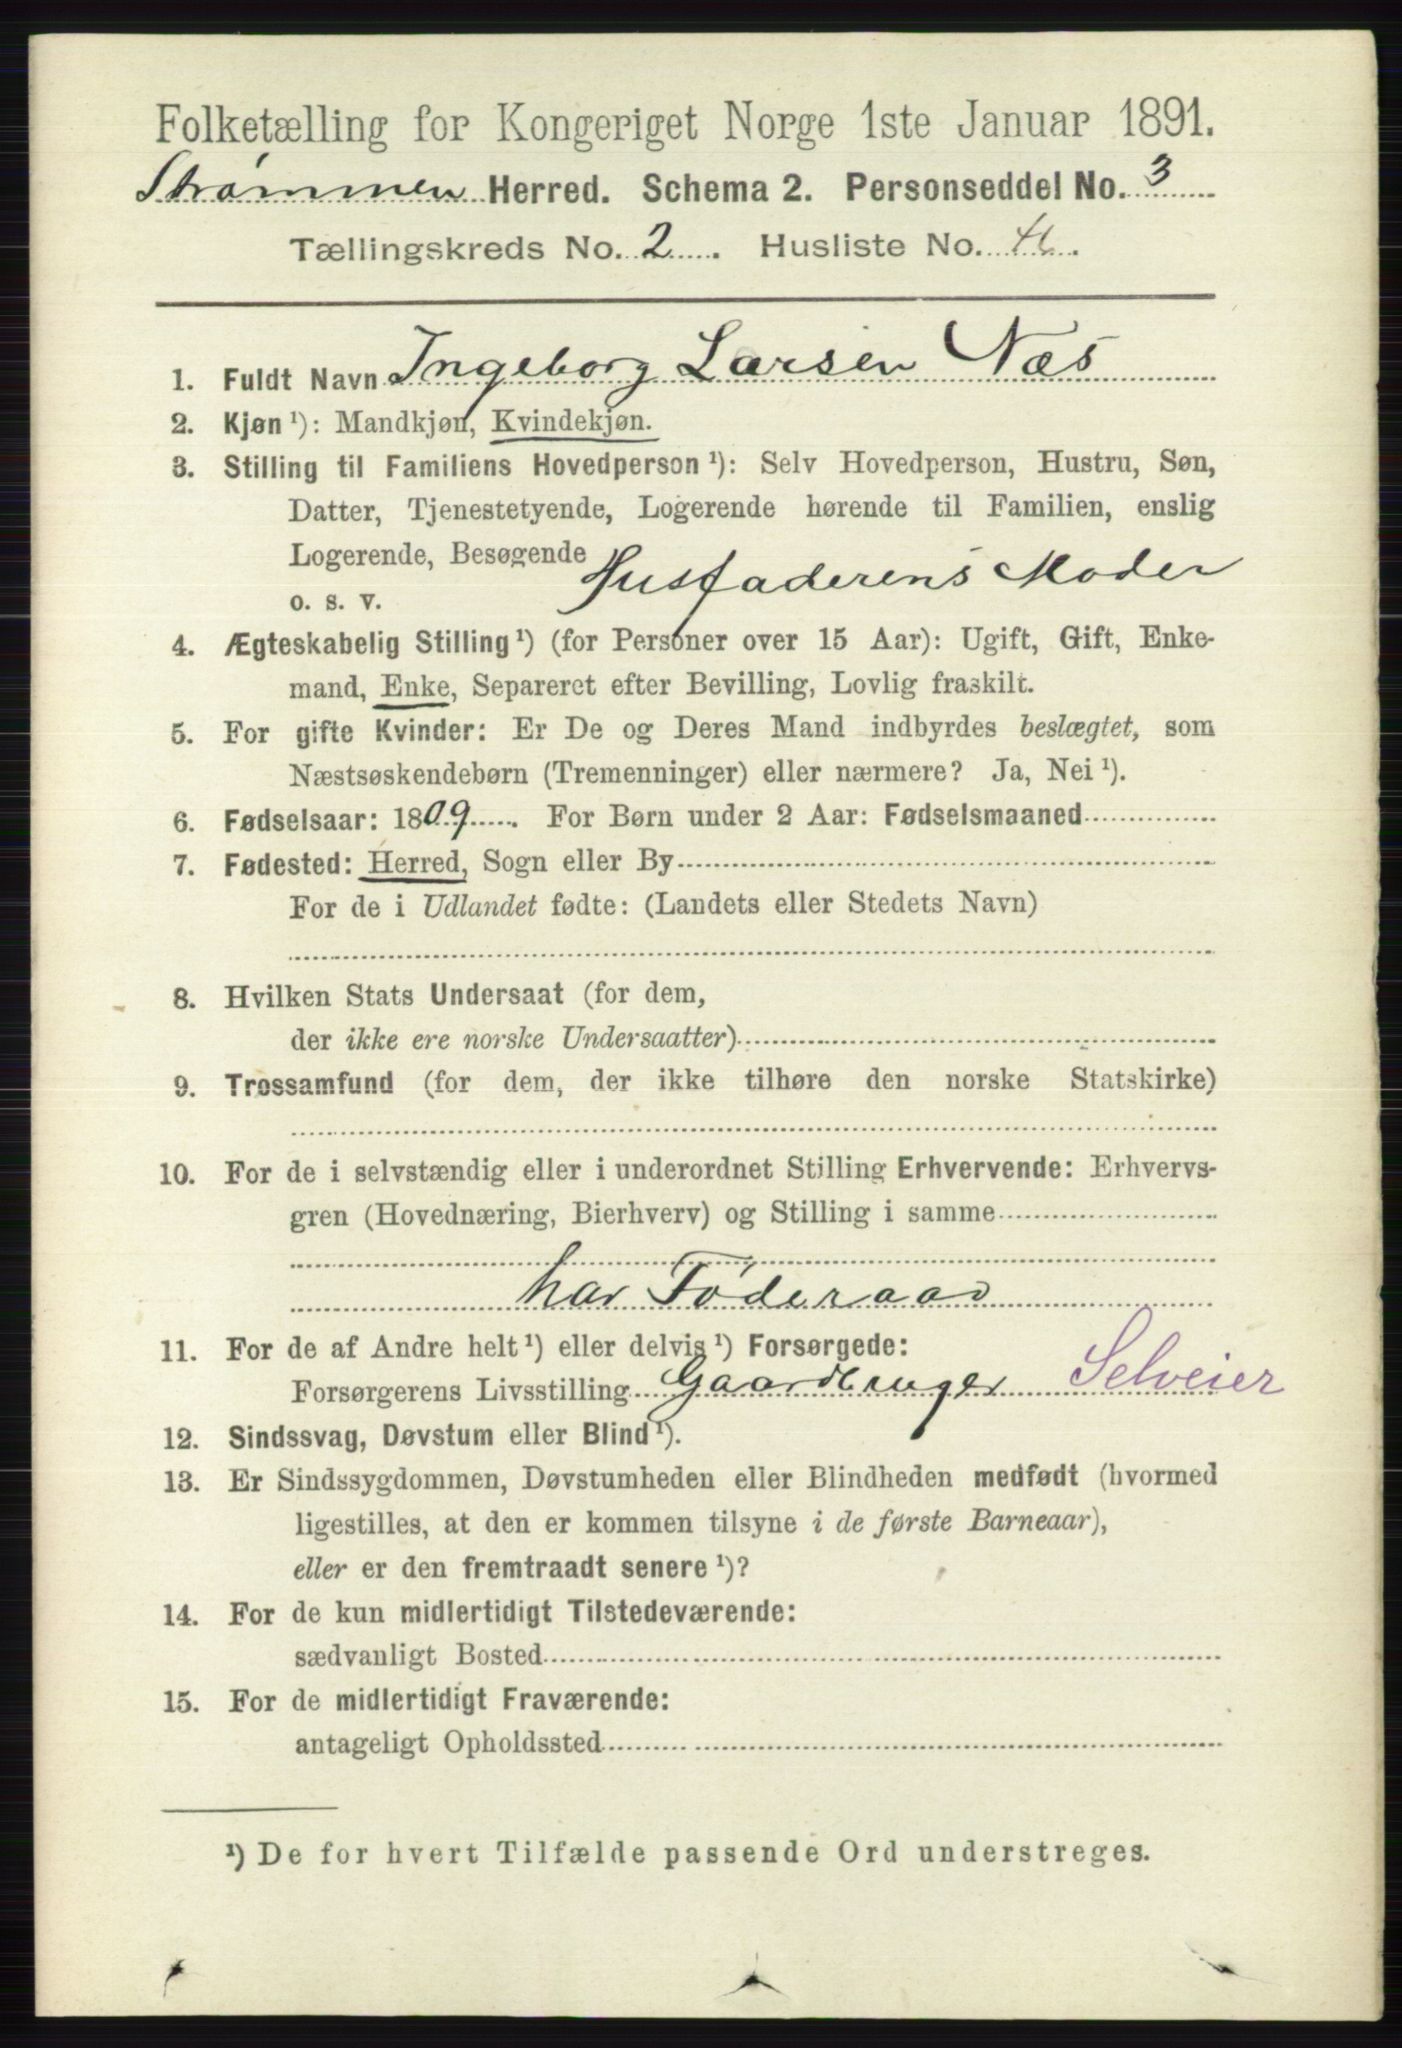 Folketælling for Kongeriget Norge 1ste Januar 1891.
Strømmen Herred. Schema 2. Personseddel No. 3
Tællingskreds No. 2. Husliste No.
1. Fuldt Navn Ingeborg Larsen Næs
2. Kjøn ¹): Mandkjøn, Kvindekjøn.
3. Stilling til Familiens Hovedperson ¹): Selv Hovedperson, Hustru, Søn,
Datter, Tjenestetyende, Logerende hørende til Familien, enslig
Logerende, Besøgende
o. s. v. Husfaderens Moder
4. Ægteskabelig Stilling ¹) (for Personer over 15 Aar): Ugift, Gift, Enke-
mand, Enke, Separeret efter Bevilling, Lovlig fraskilt.
5. For gifte Kvinder: Er De og Deres Mand indbyrdes beslægtet, som
Næstsøskendebørn (Tremenninger) eller nærmere? Ja, Nei ¹).
6. Fødselsaar: 1809. For Børn under 2 Aar: Fødselsmaaned
7. Fødested: Herred, Sogn eller By
For de i Udlandet fødte: (Landets eller Stedets Navn)
8. Hvilken Stats Undersaat (for dem,
der ikke ere norske Undersaatter)
9. Trossamfund (for dem, der ikke tilhøre den norske Statskirke)
10. For de i selvstændig eller i underordnet Stilling Erhvervende: Erhvervs-
gren (Hovednæring, Bierhverv) og Stilling i samme
har Føderaad
11. For de af Andre helt ¹) eller delvis ¹) Forsørgede:
Forsørgerens Livsstilling Gaardbruger Selveier
12. Sindssvag, Døvstum eller Blind ¹).
13. Er Sindssygdommen, Døvstumheden eller Blindheden medfødt (hvormed
ligestilles, at den er kommen tilsyne i de første Barneaar),
eller er den fremtraadt senere ¹)?
14. For de kun midlertidigt Tilstedeværende:
sædvanligt Bosted
15. For de midlertidigt Fraværende:
antageligt Opholdssted
¹) De for hvert Tilfælde passende Ord understreges.